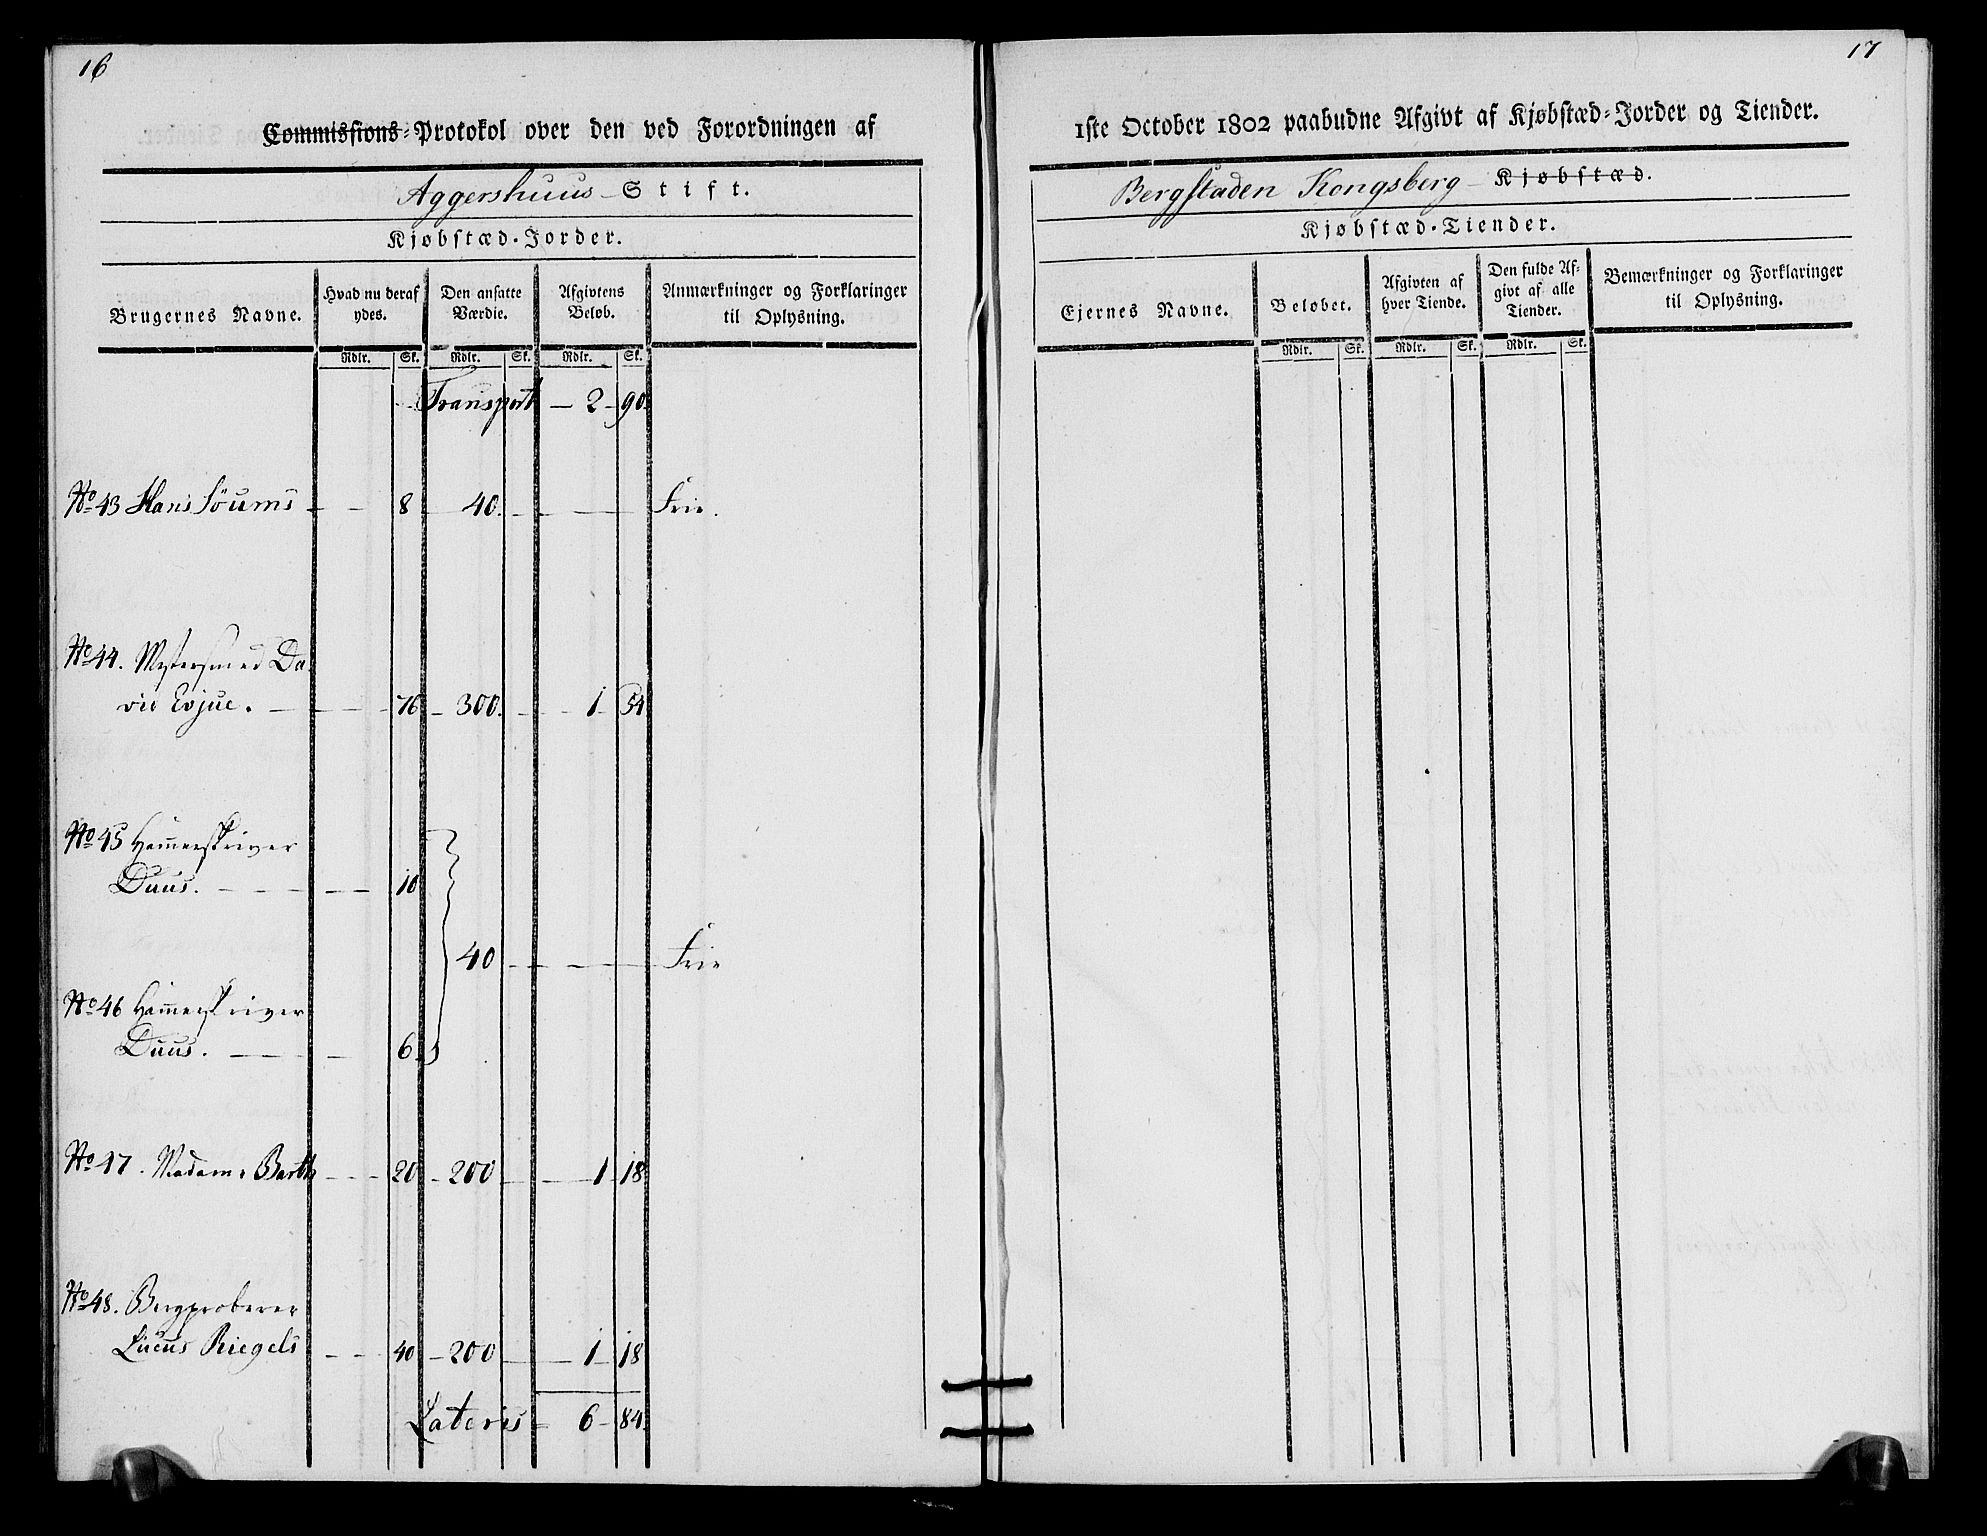 16
Commissions-Protokol over den ved Forordningen af
Aggershuus - Stift.
Kjøbstæd-Jorder.
Brugernes Navne.
Hvad nu deraf
ydes.
Den ansatte
Værdie.
Afgivtens
Beløb.
Anmærkninger og Forklaringer
til Oplysning.
Rdlr. Sk. Rdlr. Sk. Rdlr. Sk.
Transport - 2 - 90.
No 43 Hans - - 8 - 40. - - - Frie.
No 44. Mestersmed Da
vid Evjue. - - - 76 - 300. - - 1 - 54
No 45 Ham̅erskriver
Duus. - - - 10
40 - - - Frie
No 46 Ham̅erskriver
Duus. - - - 6.
No 47. Madame Barth - - 20 - 200 - - 1 - 18
No 48. Bergproberer
Riegels - - 40 - 200 - - 1 - 18
Lateris - 6 - 84.
17
1ste October 1802 paabudne Afgivt af Kjøbstæd-Jorder og Tiender.
Bergstaden Kongsberg - Kjøbstæd.
Kjøbstæd-Tiender.
Ejernes Navne.
Beløbet.
Afgivten af
hver Tiende.
Den fulde Af-
givt af alle
Tiender.
Bemærkninger og Forklaringer
til Oplysning.
Rdlr. Sk. Rdlr. Sk. Rdlr. Sk.